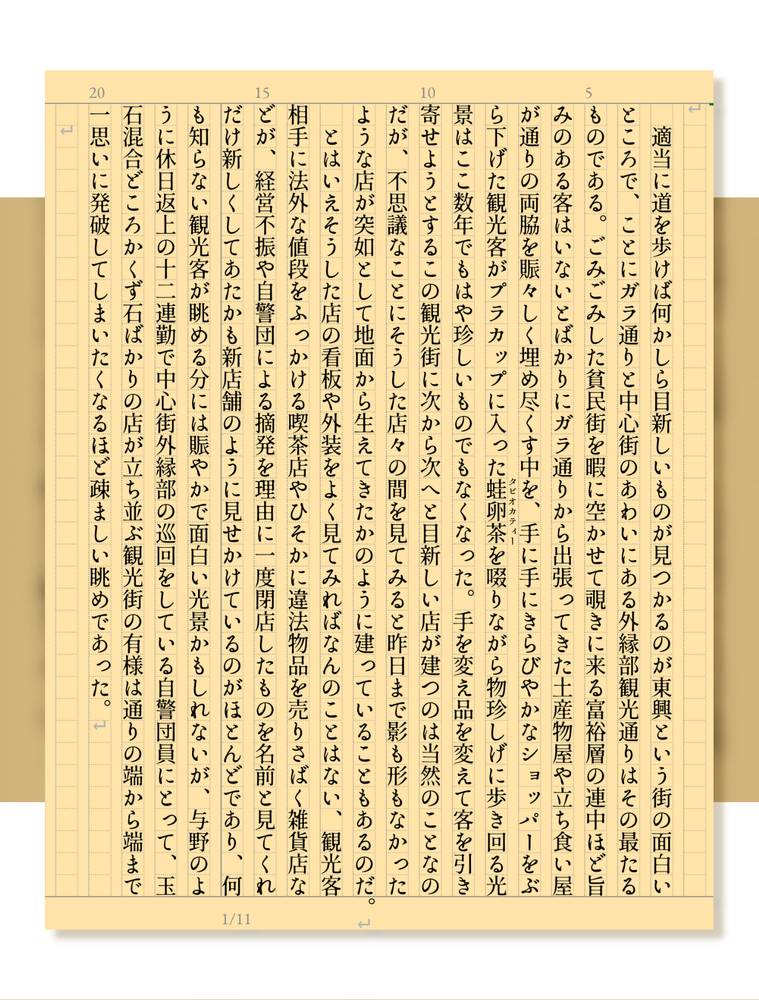 20 15 10 5
適当に道を歩けば何かしら目新しいものが見つかるのが東興という街の面白い
ところで、ことにガラ通りと中心街のあわいにある外縁部観光通りはその最たる
ものである。ごみごみした貧民街を暇に空かせて覗きに来る富裕層の連中ほど旨
みのある客はいないとばかりにガラ通りから出張ってきた土産物屋や立ち食い屋
が通りの両脇を賑々しく埋め尽くす中を、手に手にきらびやかなショッパーをぶ
ら下げた観光客がプラカップに入った蛙卵茶を啜りながら物珍しげに歩き回る光
タピオカティー
景はここ数年でもはや珍しいものでもなくなった。手を変え品を変えて客を引き
寄せようとするこの観光街に次から次へと目新しい店が建つのは当然のことなの
だが、不思議なことにそうした店々の間を見てみると昨日まで影も形もなかった
ような店が突如として地面から生えてきたかのように建っていることもあるのだ。
とはいえそうした店の看板や外装をよく見てみればなんのことはない、観光客
相手に法外な値段をふっかける喫茶店やひそかに違法物品を売りさばく雑貨店な
どが、経営不振や自警団による摘発を理由に一度閉店したものを名前と見てくれ
だけ新しくしてあたかも新店舗のように見せかけているのがほとんどであり、何
も知らない観光客が眺める分には賑やかで面白い光景かもしれないが、与野のよ
うに休日返上の十二連勤で中心街外縁部の巡回をしている自警団員にとって、玉
石混合どころかくず石ばかりの店が立ち並ぶ観光街の有様は通りの端から端まで
一思いに発破してしまいたくなるほど疎ましい眺めであった。
1/11